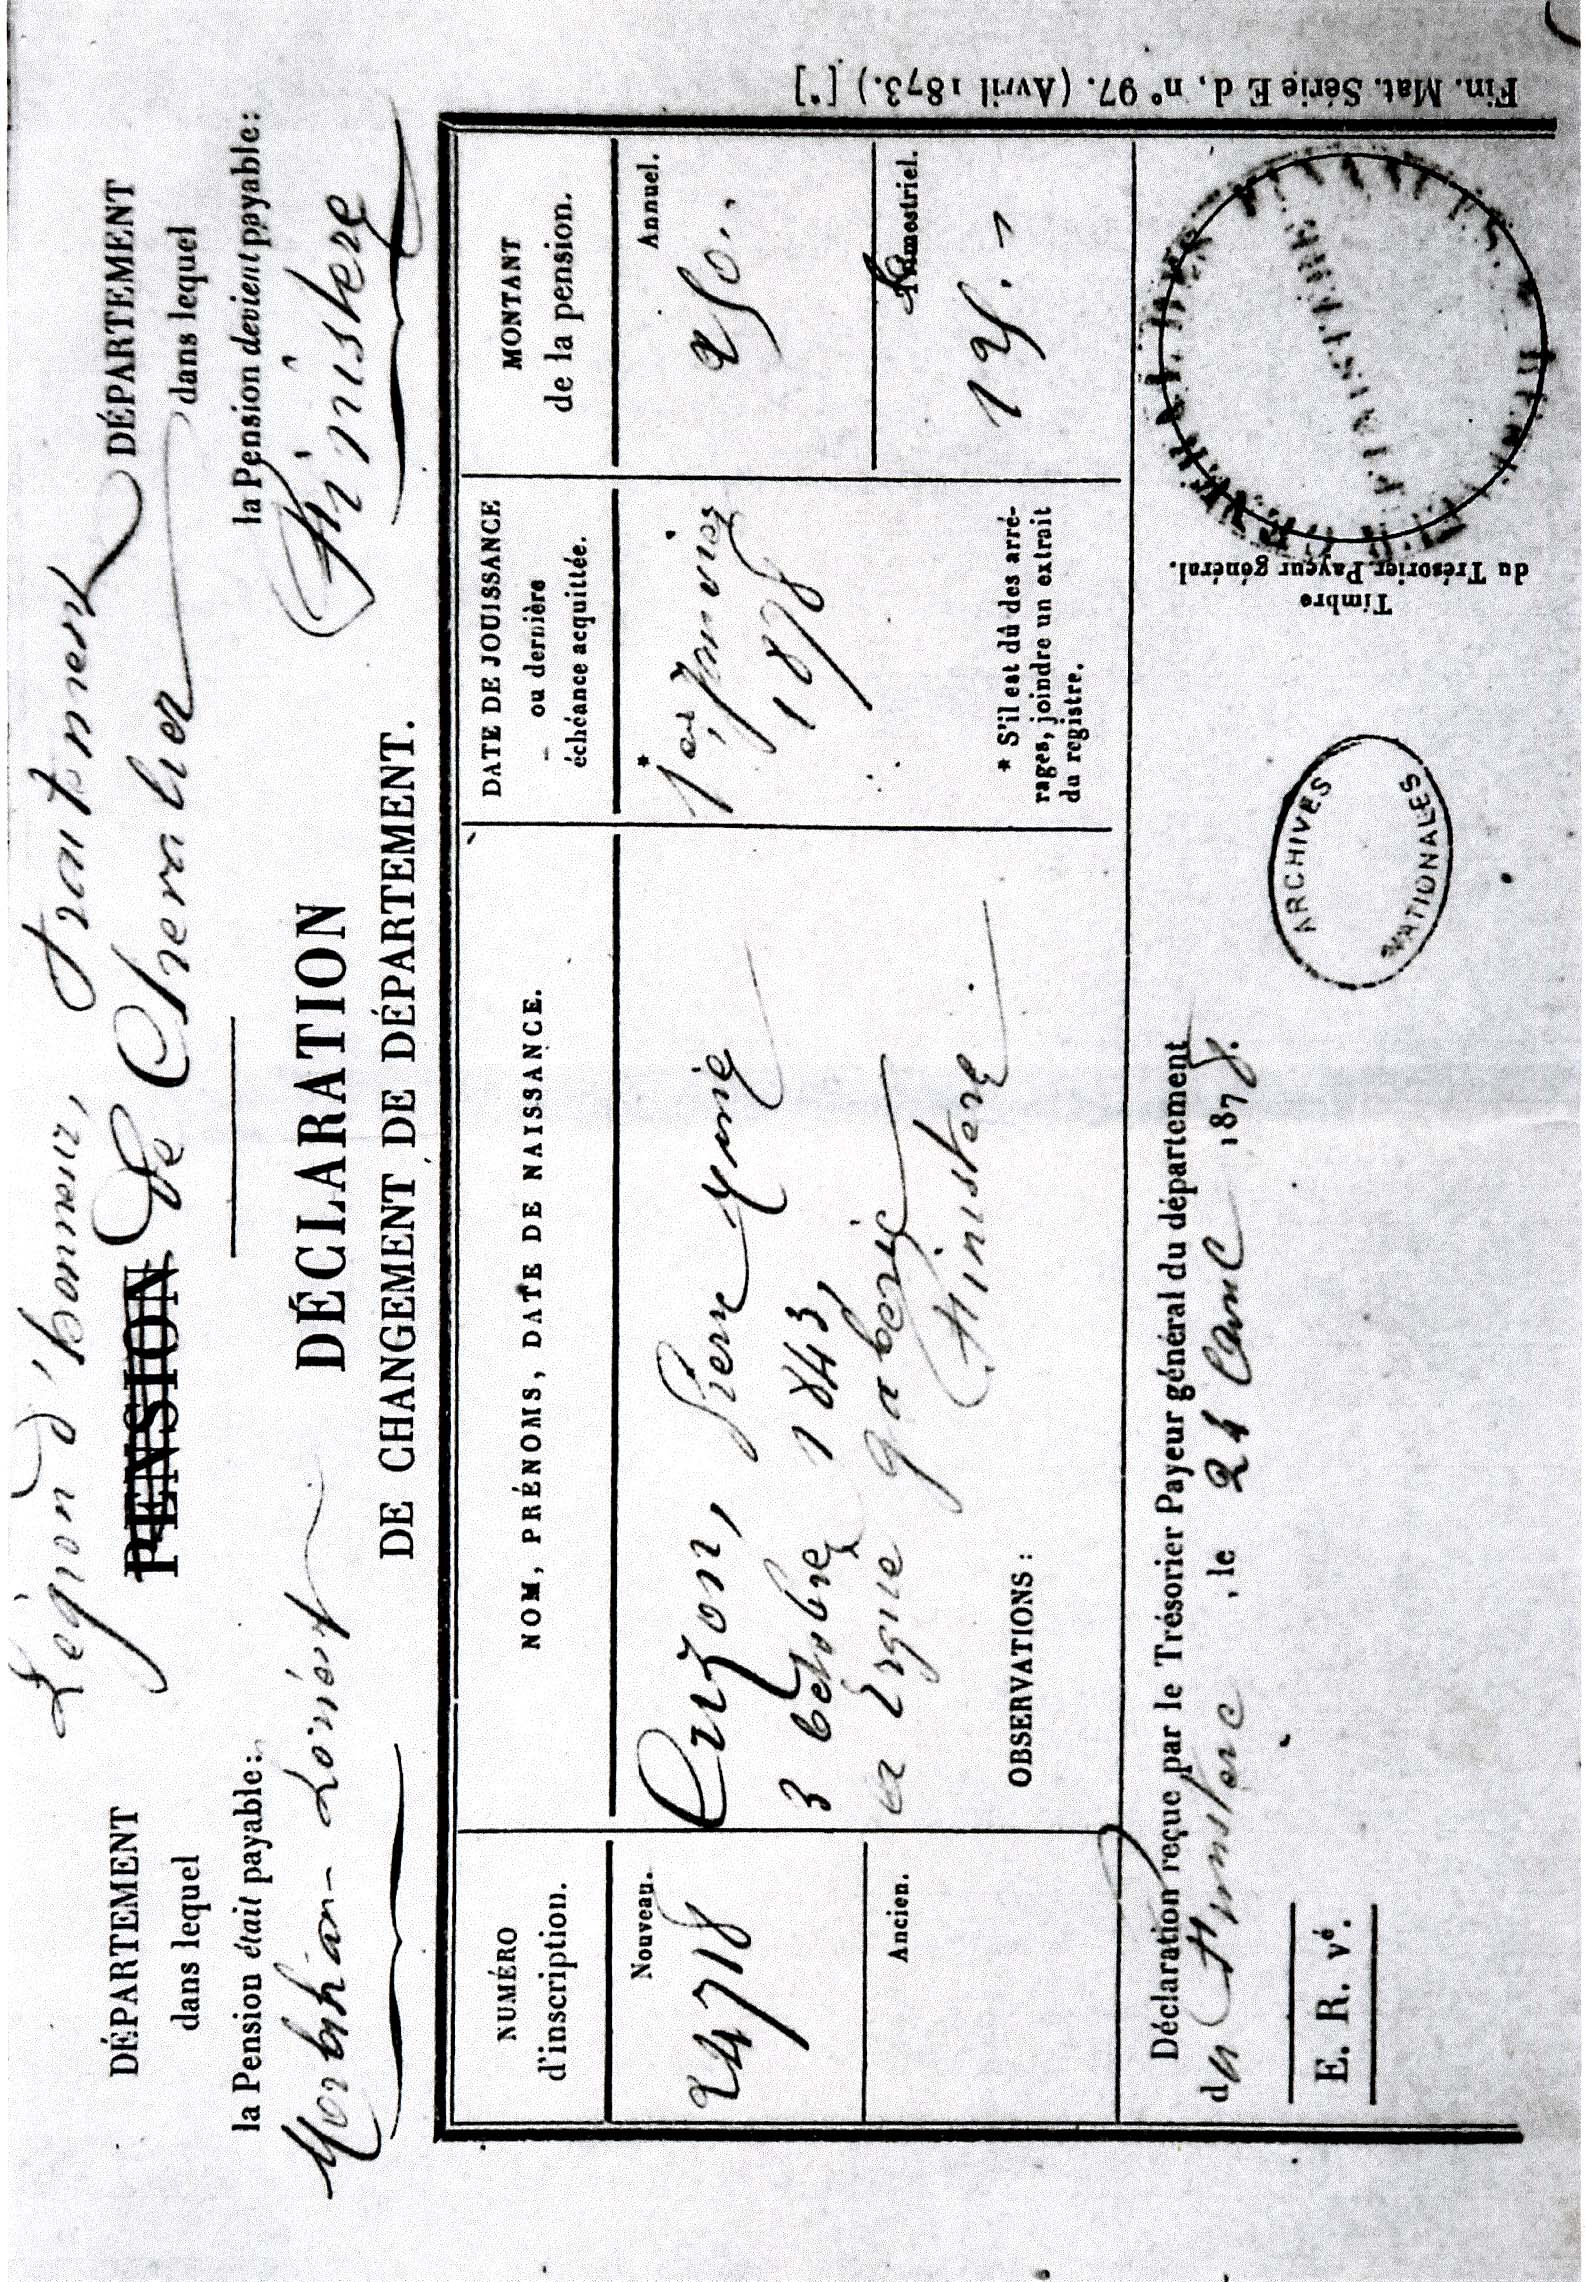 Légion d'honneur, Traitement
PENSION de Chevalier
DÉPARTEMENT
dans lequel
la Pension était payable:
Morbihan - Lorient
DÉPARTEMENT
dans lequel
la Pension devient payable:
Finistère
DÉCLARATION
DE CHANGEMENT DE DÉPARTEMENT.
NUMÉRO
d'inscription.
Nouveau.
24718
Ancien.
NOM, PRÉNOMS, DATE DE NAISSANCE.
Luzon, Pierre Marie
3 8bre 1843,
a Ergué gaberic
Finistère
OBSERVATIONS :
DATE DE JOUISSANCE
ou dernière
échéance acquittée.
* 1er Janvier
1878
* S'il est dû des arré-
rages, joindre un extrait
du registre.
MONTANT
de la pension.
Annuel.
250..
Trimestriel.
125..
Déclaration reçue par le Trésorier Payeur général du département
du Finistère, le 24 1878.
E. R. vé.
Timbre
du Trésorier Payeur général.
FINISTÈRE
ARCHIVES
NATIONALES
Fin. Mat. Série E d, n° 97. (Avril 1873.) [*]